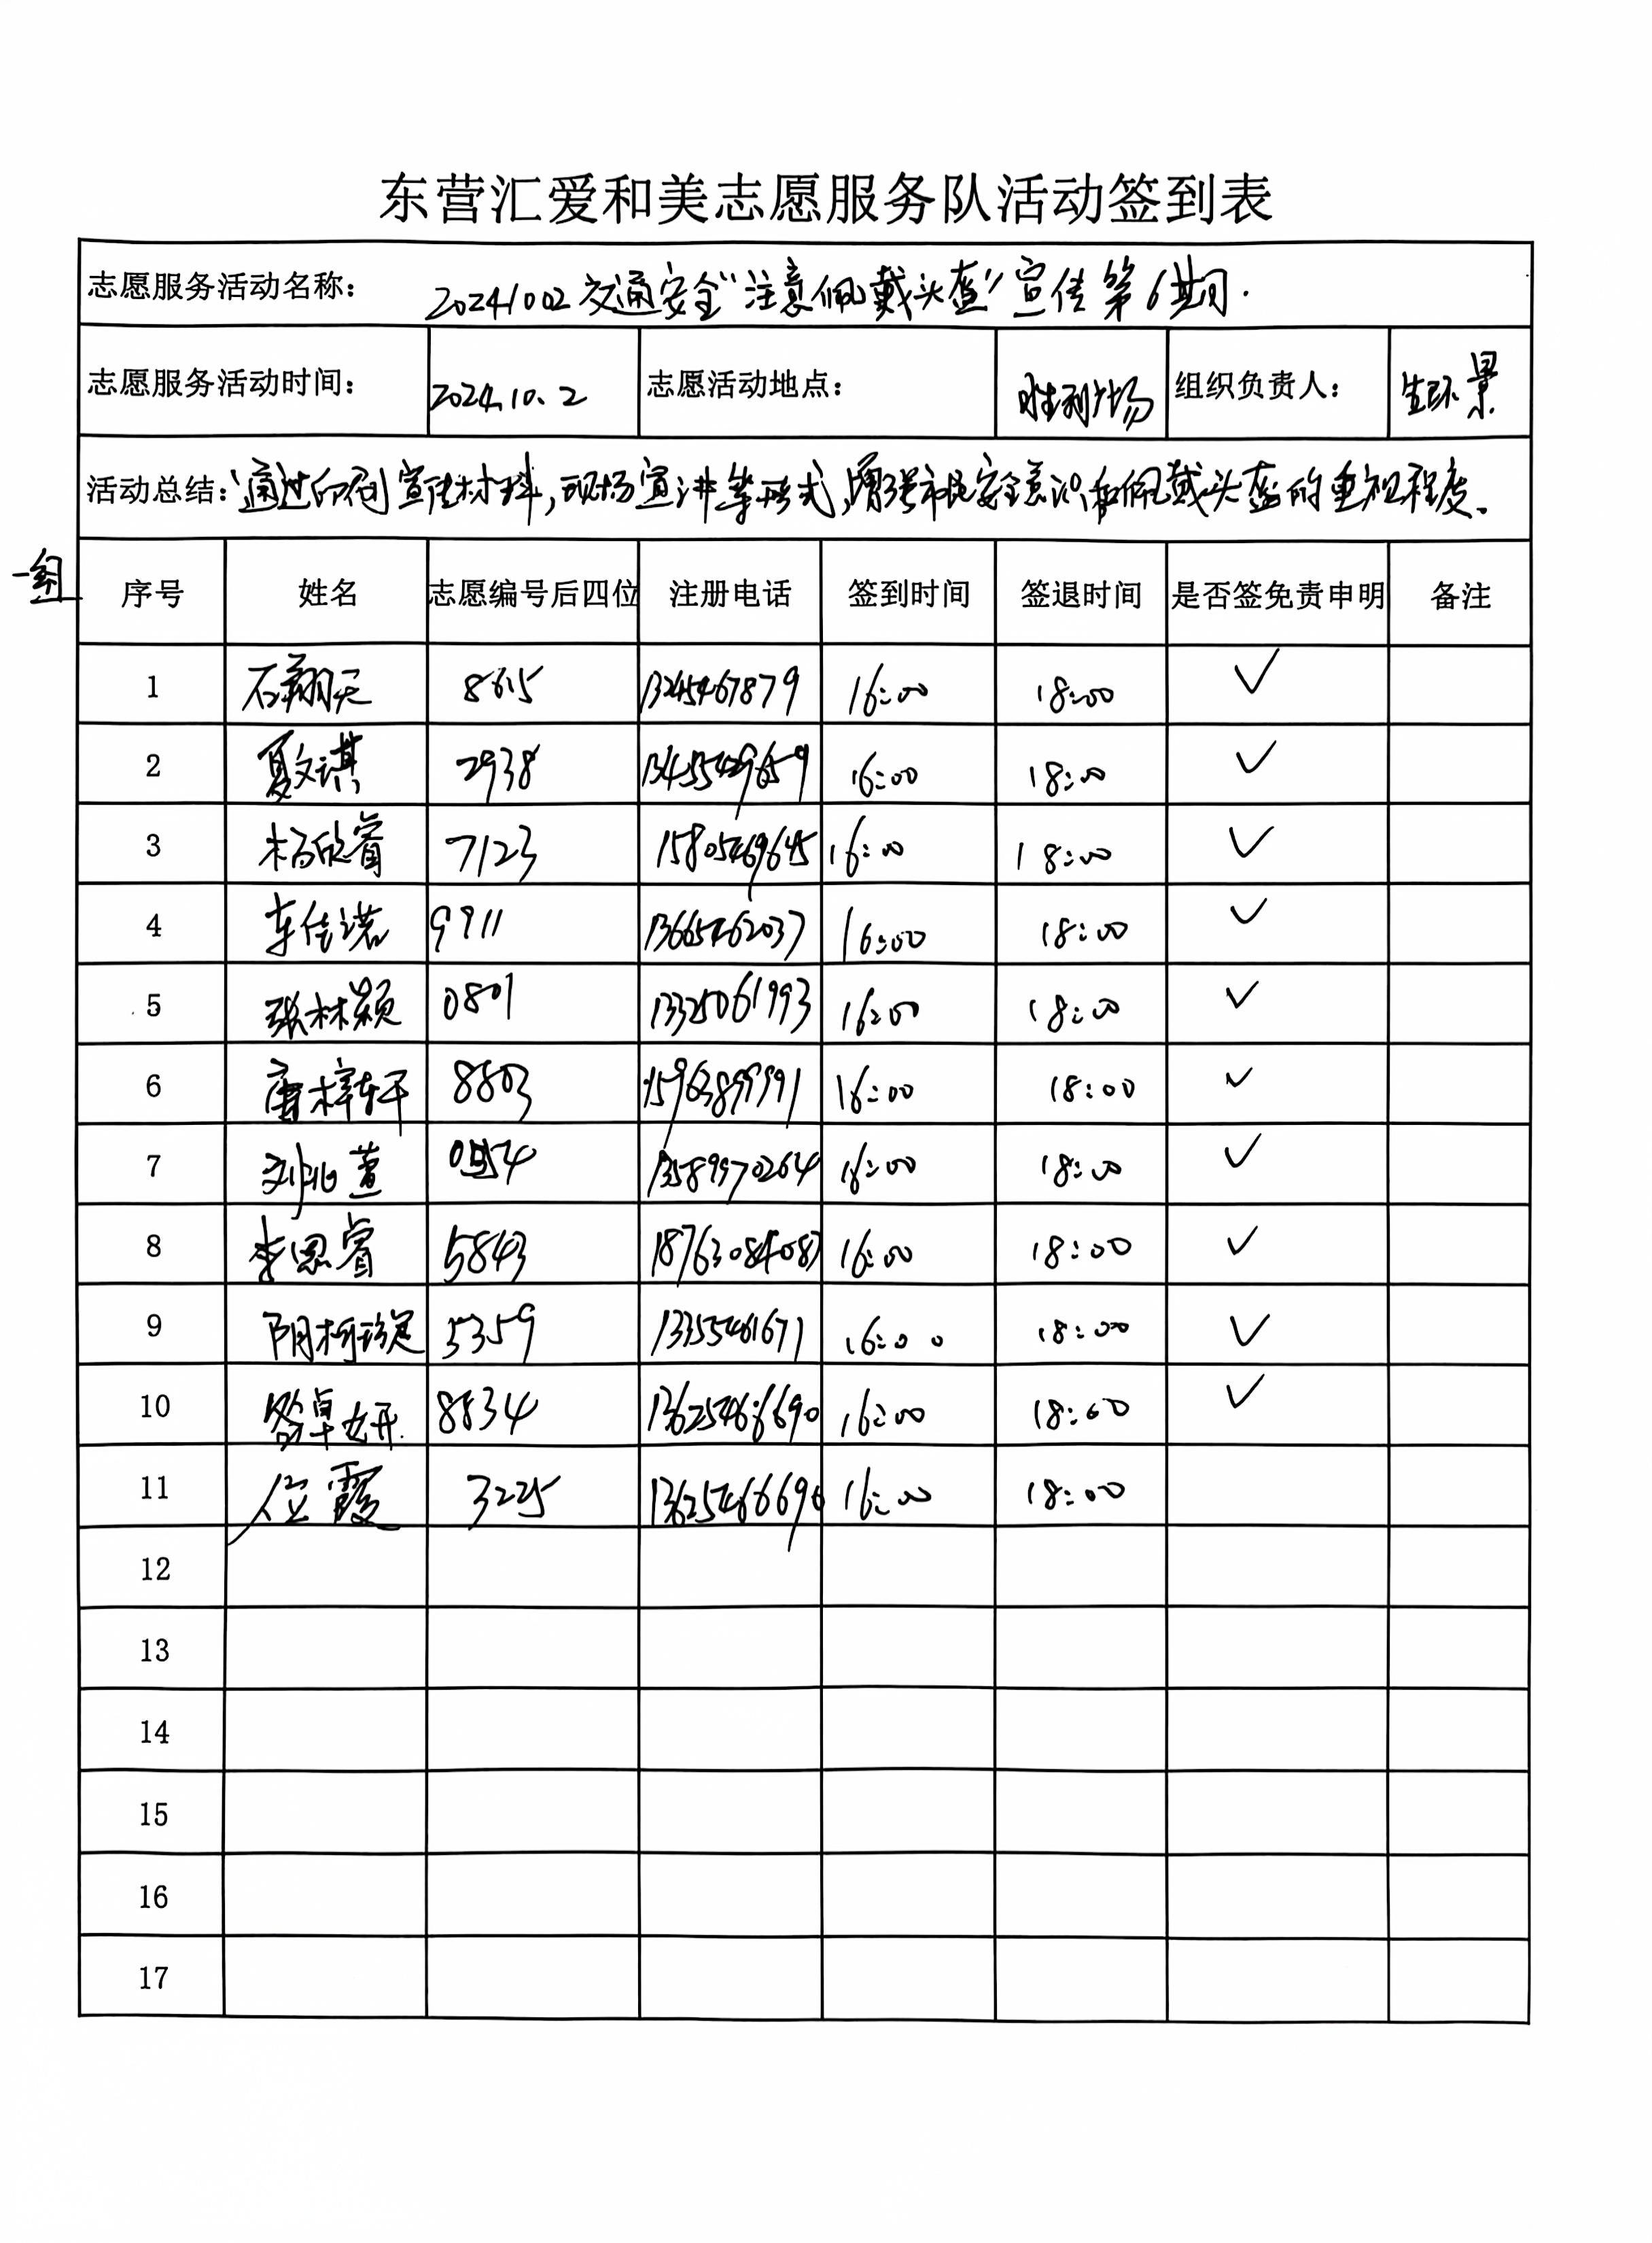 东营汇爱和美志愿服务队活动签到表
志愿服务活动名称： 20241002交通安全"注意佩戴头盔"宣传第6期.
志愿服务活动时间： 2024.10.2 志愿活动地点： 胜利广场 组织负责人： 生环景
活动总结：通过印刷宣传材料，现场宣讲等形式，增强市民安全意识和佩戴头盔的重视程度。
一组
序号 姓名 志愿编号后四位 注册电话 签到时间 签退时间 是否签免责申明 备注
1 石翔天 8615 13245467879 16:00 18:00 ✓
2 夏文谋 2938 16:00 18:00 ✓
3 杨欣睿 7123 15805469645 16:00 18:00 ✓
4 车佳诺 9911 13665462037 16:00 18:00 ✓
5 张林颖 0801 13325061993 16:00 18:00 ✓
6 唐梓轩 8803 15963899991 16:00 18:00 ✓
7 13589970264 16:00 18:00 ✓
8 李思睿 5843 18763084087 16:00 18:00 ✓
9 5359 13355461671 16:00 18:00 ✓
10 昝卓妍 8834 13625466690 16:00 18:00 ✓
11 位霞 3225 13625466690 16:00 18:00
12
13
14
15
16
17